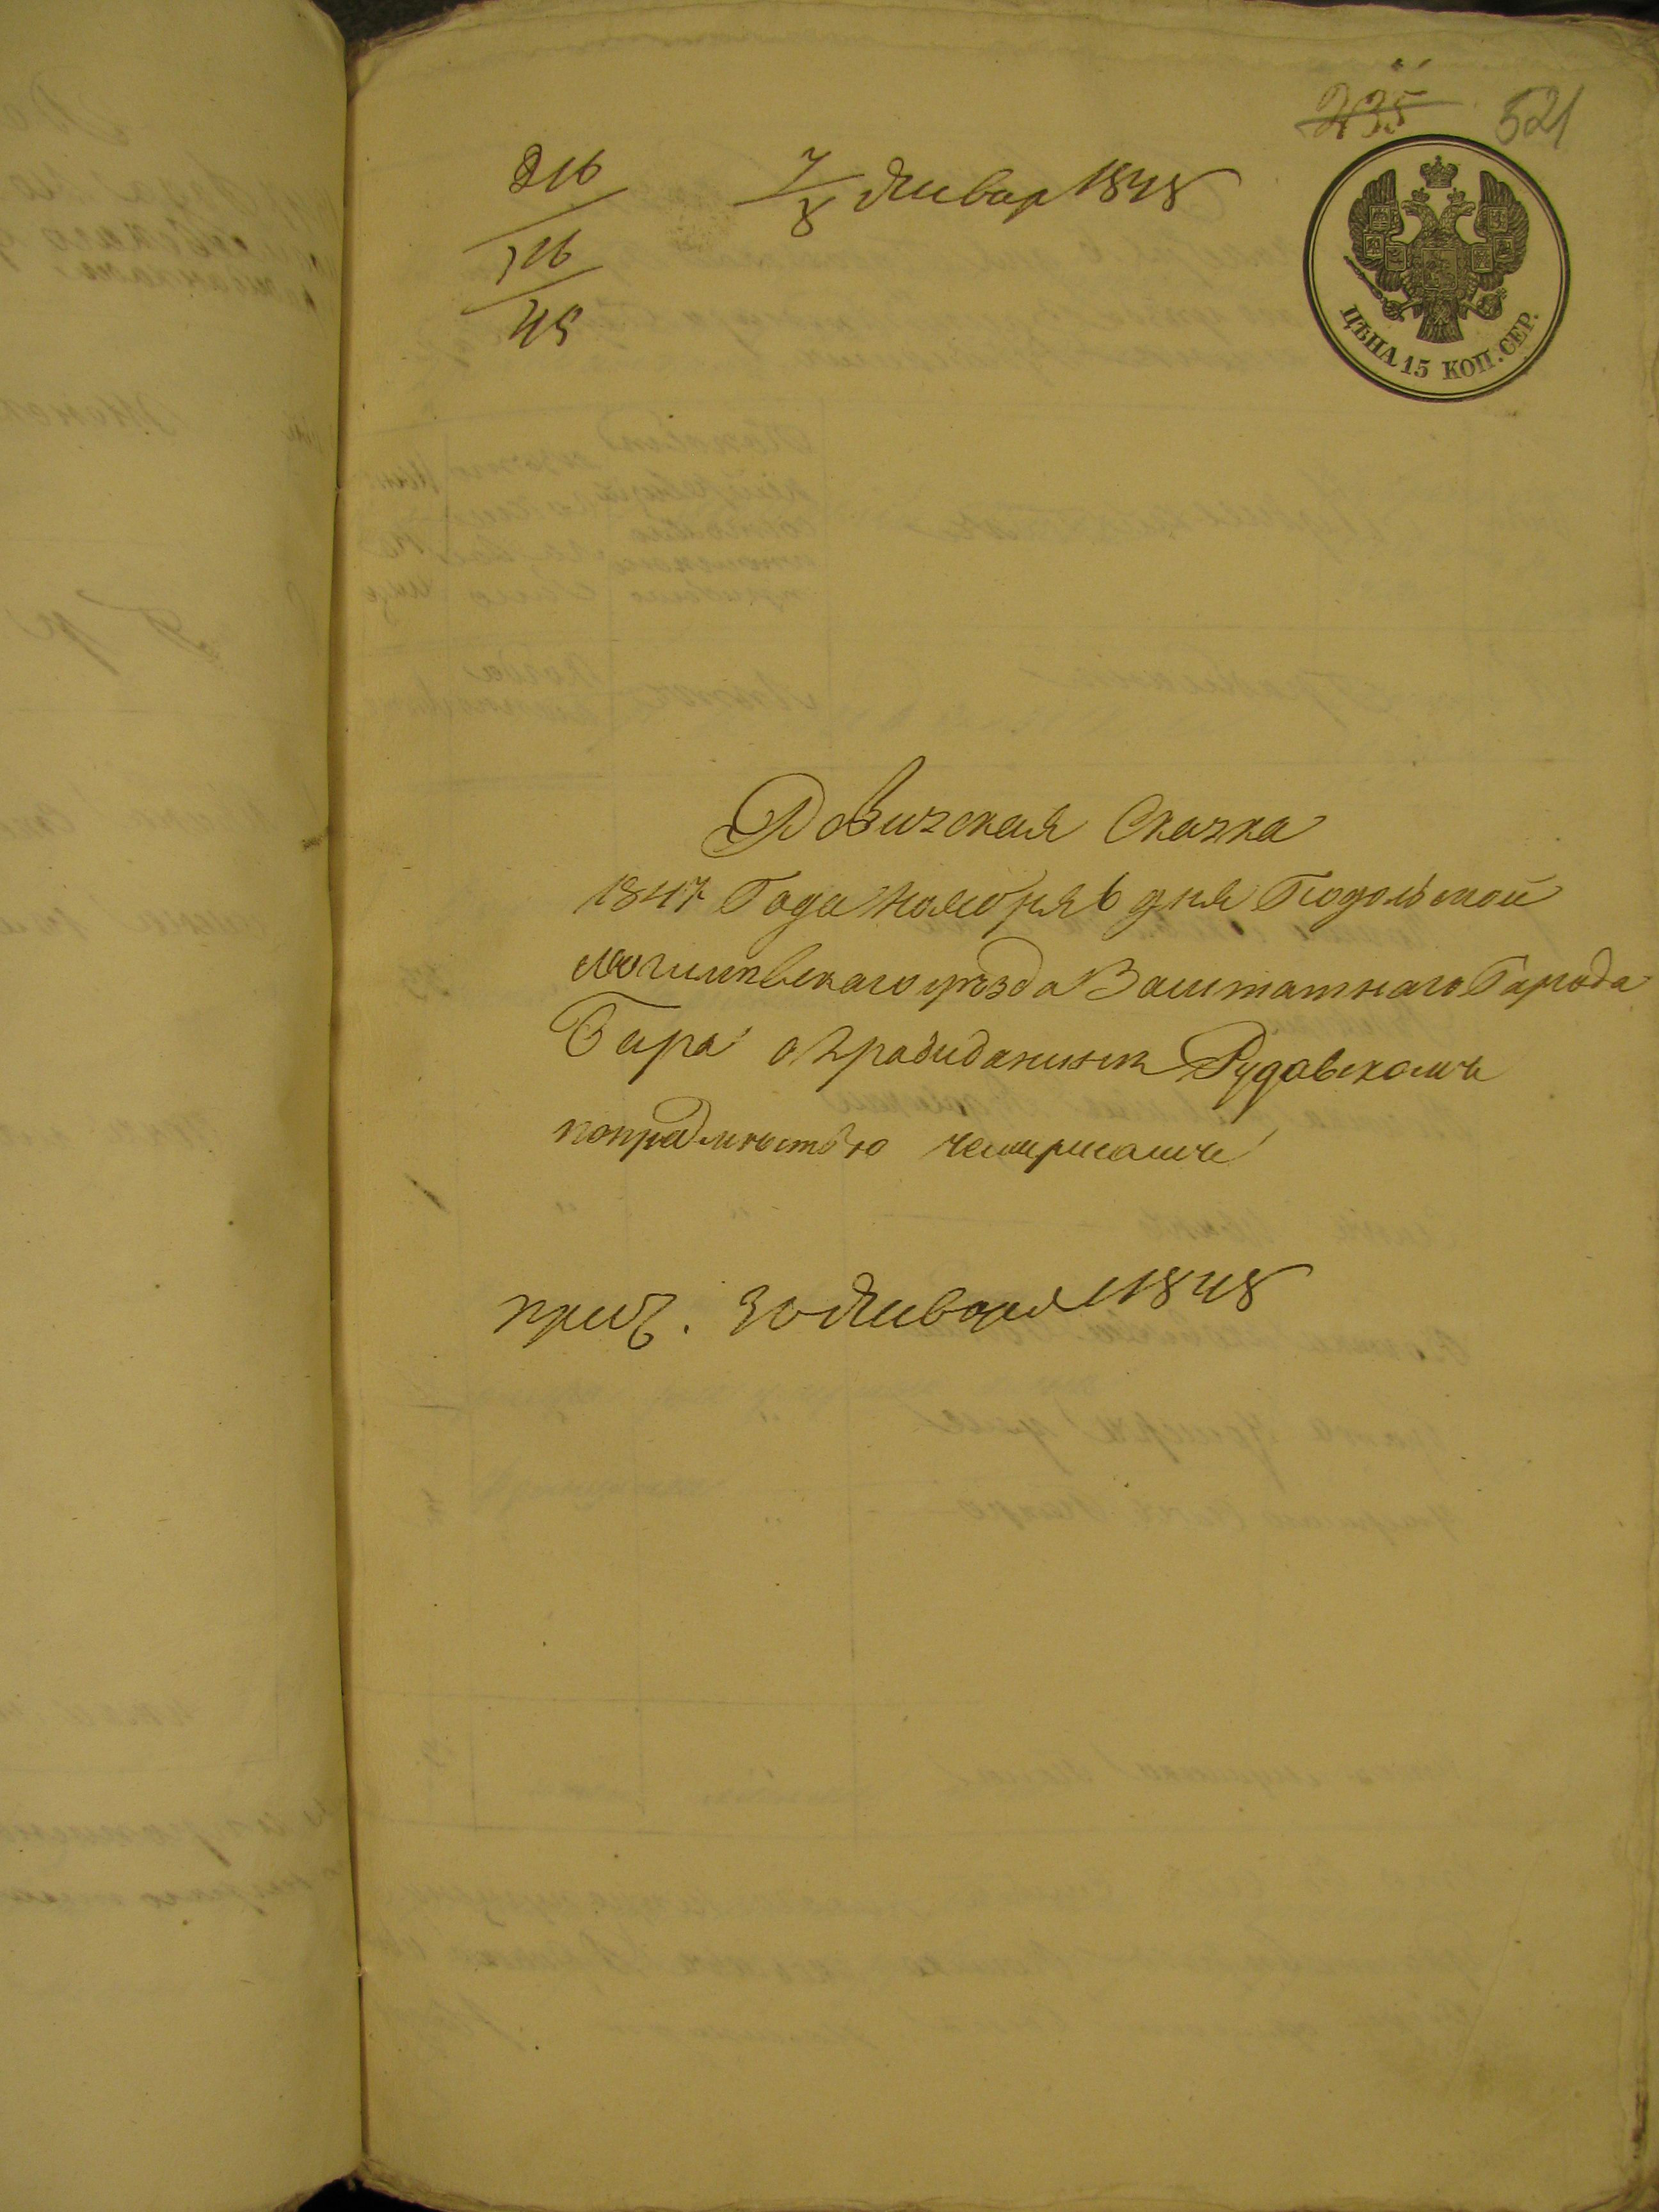 235 521
216
116
45
7/8 Январ 1848
ЦѢНА 15 КОП. СЕР.
Ревизская Сказка
1847 Года Ноября 6 дня Подольской
Могилевскаго уѣзда Заштатнаго Города
Бара о Гражданинѣ Рудавскомъ
30 Января 1848